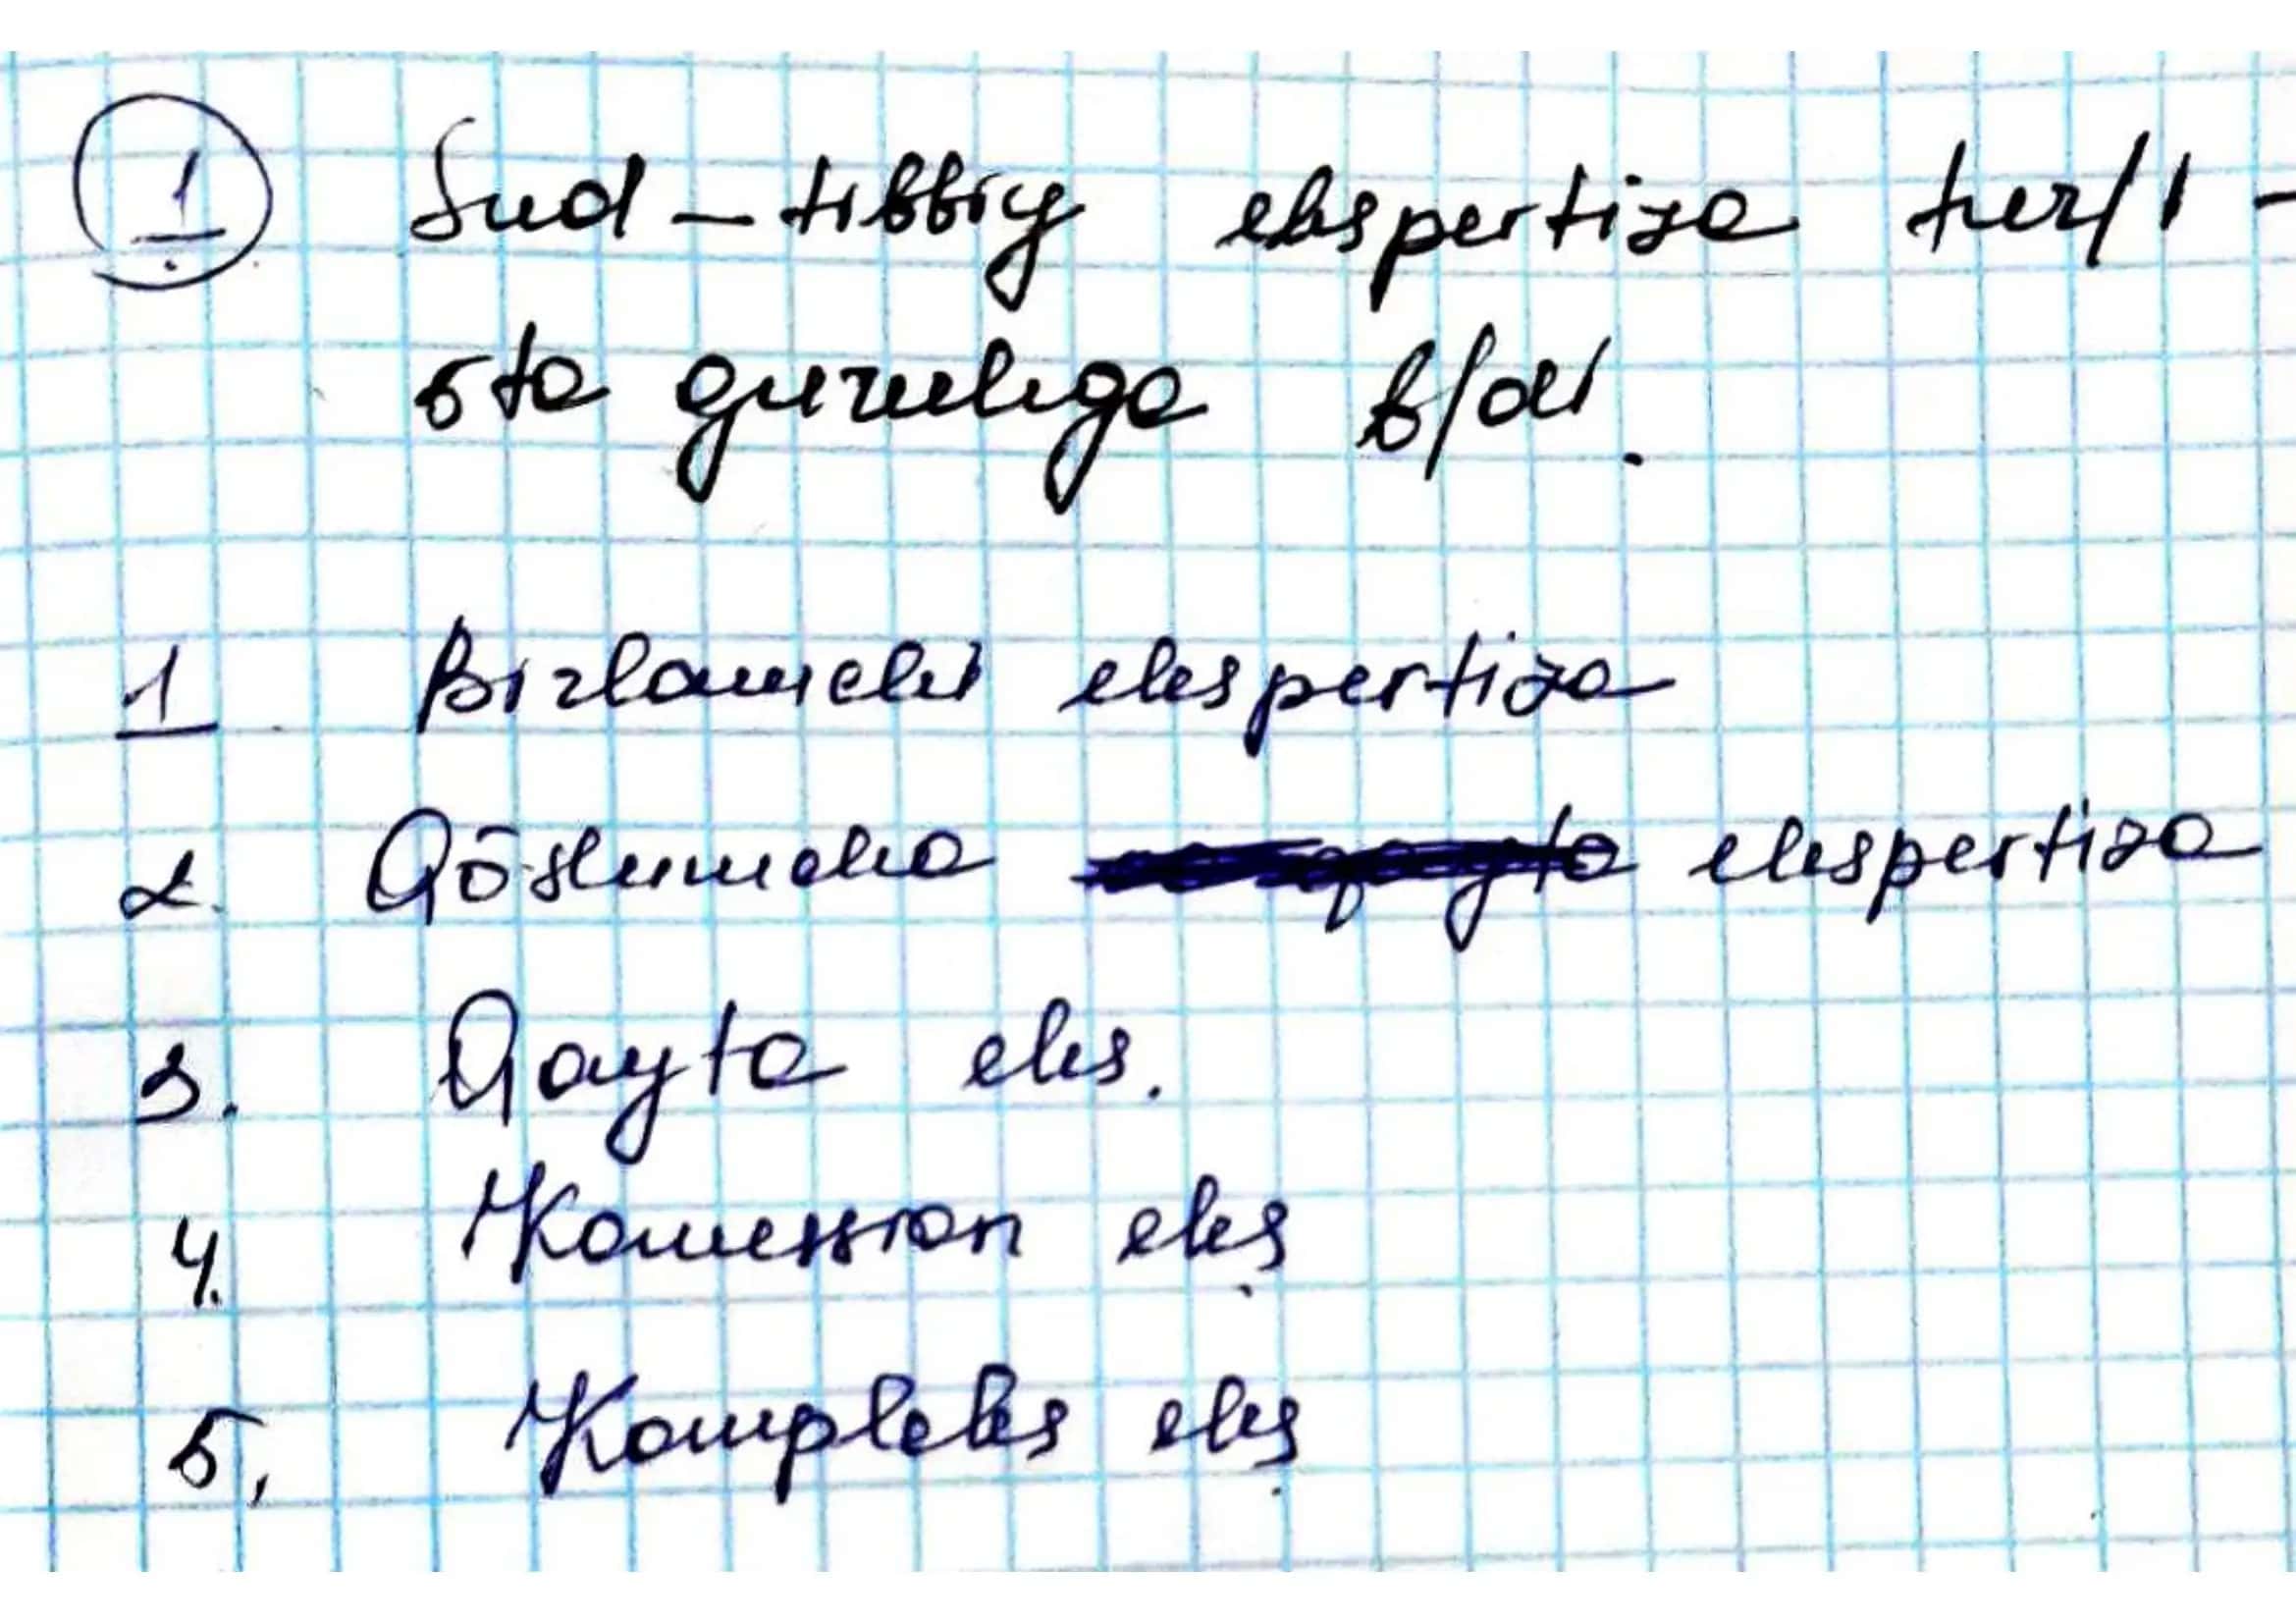 ① Sud-tibbiy ekspertiza tur/i -
5ta guruhga b/di.
1 Birlamchi ekspertiza
2. Qōshimcha qayta ekspertiza
3. Qayta eks.
4. Komession eks.
5. Kompleks eks.